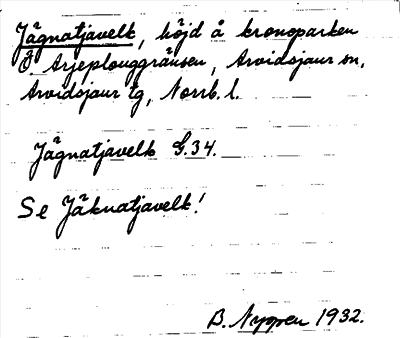 Jägnatjavelk, höjd å kronoparken
Ö. Arjeplouggränsen, Arvidsjaur sn,
Arvidsjaur tg, Norrb. l.
Jägnatjavelk G.34.
Se Jäknatjavelk!
B. Nyppen 1932.